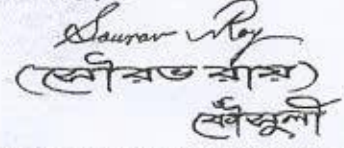 Sourav Roy
(সৌরভ রায়)
কৌঁসুলী